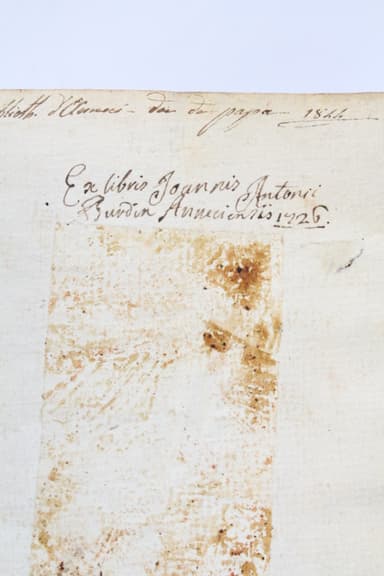 d'Anneci - don de papa - 1844
Ex libris Joannis Antonii
Burdin Anneciensis 1726.